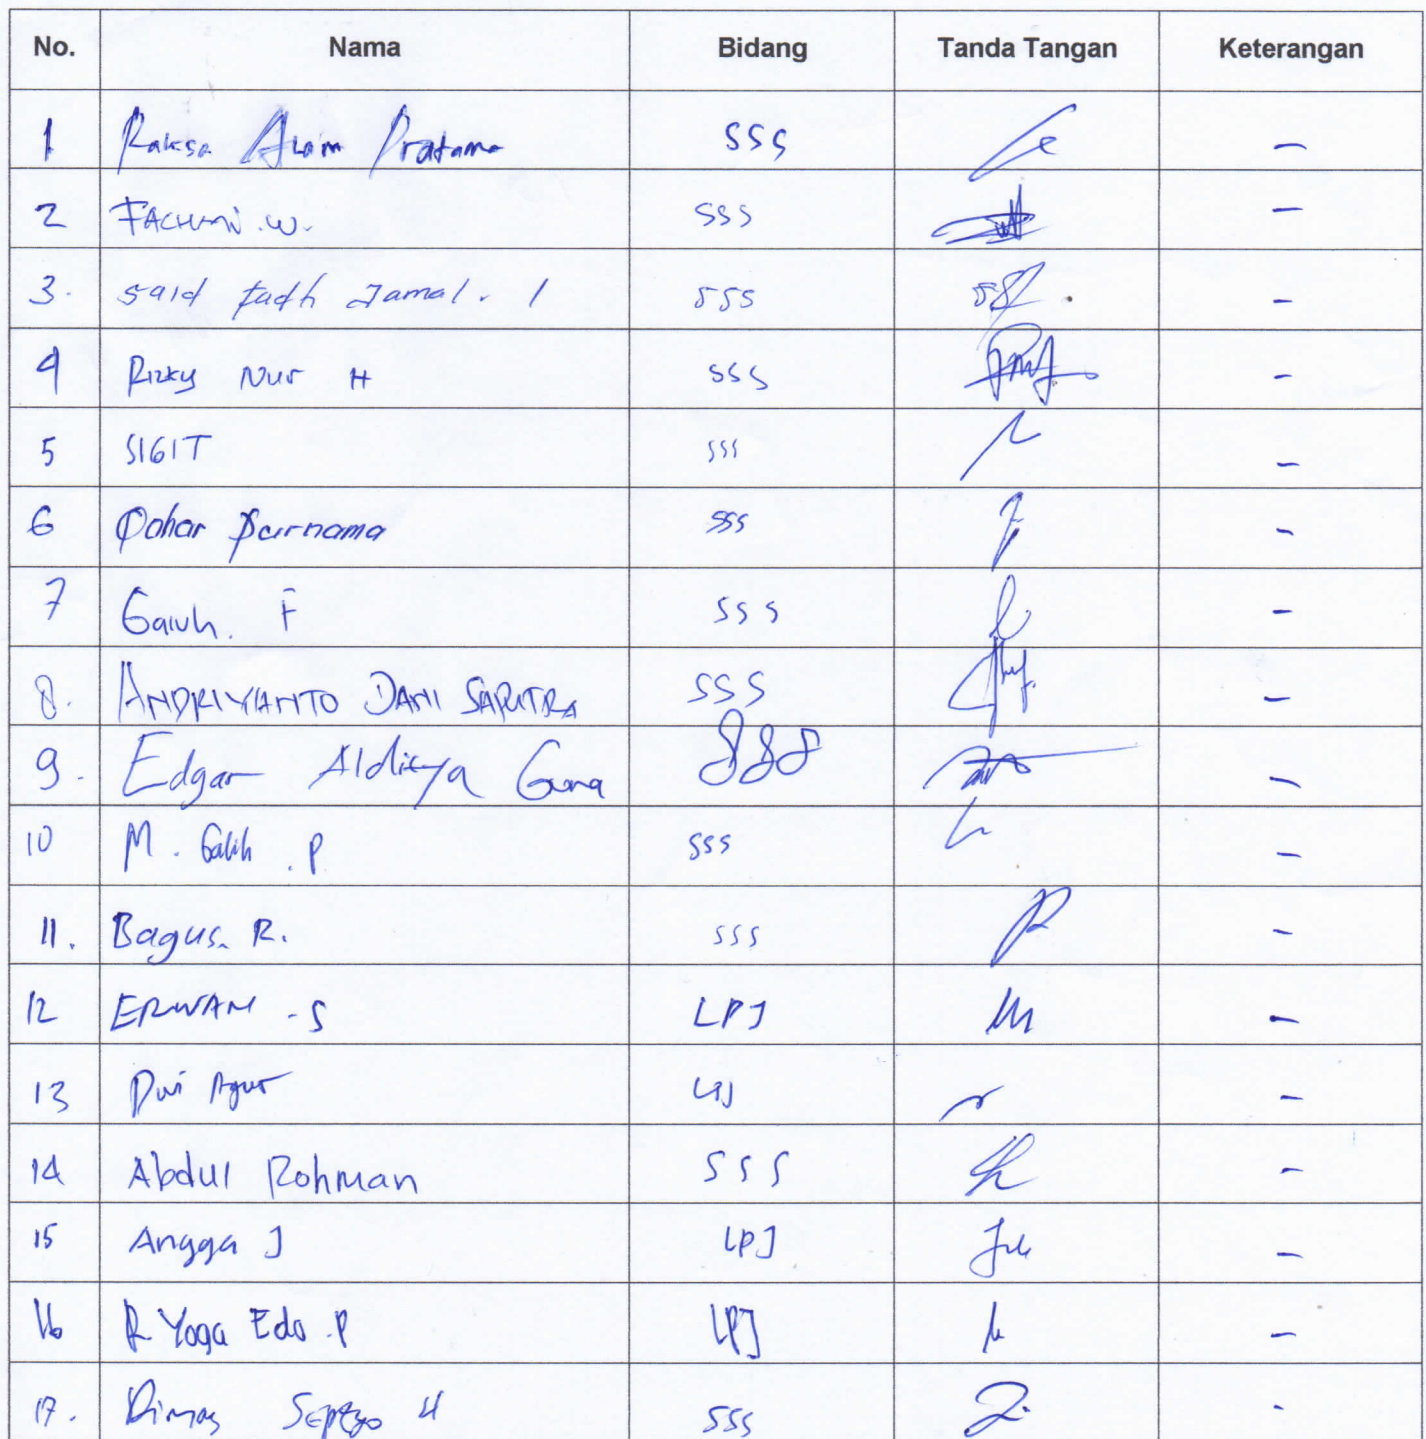 No. Nama Bidang Tanda Tangan Keterangan
1 Raksa Alam Pratama SSS -
2 FACHMI.W. SSS -
3. Said Fath Jamal. I SSS -
4 Rizky Nur H SSS -
5 SIGIT SSS -
6 Qohar Purnama SSS -
7 Galuh. F SSS -
8. ANDRIYANTO DANI SAPUTRA SSS -
9. Edgar Alditya Guna SSS -
10 M. Galih .P SSS -
11. Bagus. R. SSS -
12 ERWAN .S LPJ -
13 Dwi Agus LPJ -
14 Abdul Rohman SSS -
15 Angga J LPJ -
16 R Yoga Edo .P LPJ -
17. Dimas Septyo H SSS -